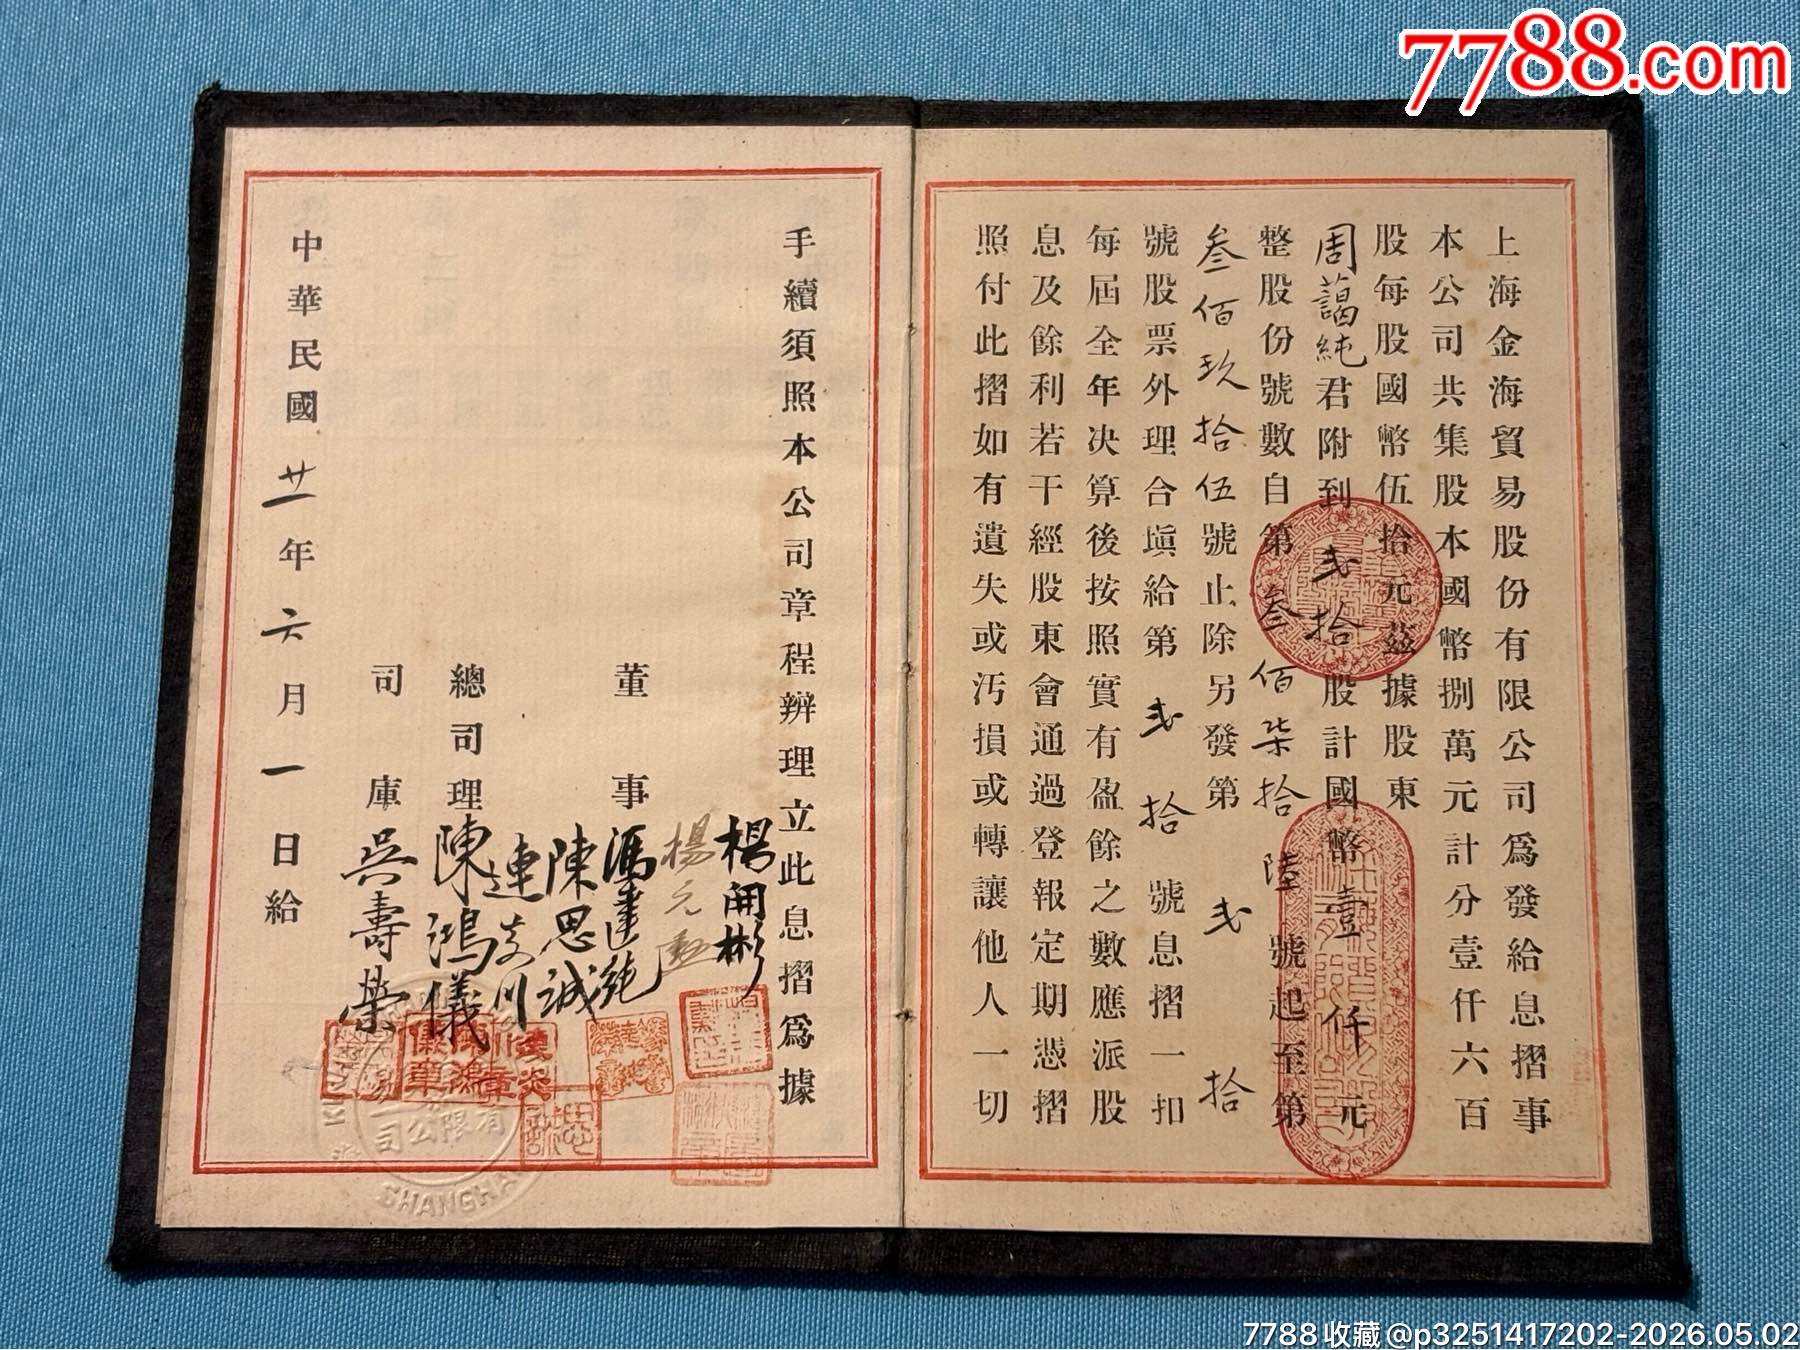 7788.com
上海金海貿易股份有限公司爲發給息摺事
本公司共集股本國幣捌萬元計分壹仟六百
股每股國幣伍拾元茲據股東
周藹純君附到弍拾股計國幣壹仟元
整股份號數自第叁佰柒拾陸號起至第
叁佰玖拾伍號止除另發第弍拾
號股票外理合塡給第弍拾號息摺一扣
每屆全年决算後按照實有盈餘之數應派股
息及餘利若干經股東會通過登報定期憑摺
照付此摺如有遺失或汚損或轉讓他人一切
手續須照本公司章程辦理立此息摺爲據
楊開彬
楊元勳
董事馮建純
陳思誠
連炎川
總司理陳鴻儀
司庫吳壽榮
中華民國廿一年六月一日給
有限公司
SHANGHA
7788收藏@p3251417202-2026.05.02